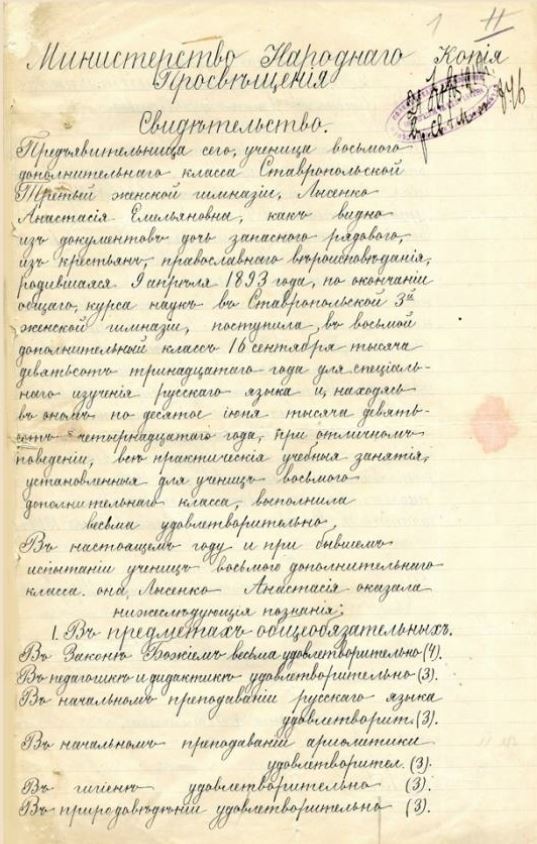 1 11
Министерство Народнаго Копія
Просвѣщенія
846
Свидѣтельство.
Предъявительница сего, ученица восьмого
дополнительнаго класса Ставропольской
Третьей женской гимназіи, Лысенко
Анастасія Емельяновна, какъ видно
изъ документовъ дочь запасного рядового,
изъ крестьянъ, православнаго вѣроисповѣданія,
родившаяся 9 апрѣля 1893 года, по окончаніи
общаго, курса наукъ въ Ставропольской 3й
женской гимназіи, поступила, въ восьмой
дополнительный классъ 16 сентября тысяча
девятьсотъ тринадцатаго года для спеціаль-
наго изученія русскаго языка и, находясь
въ ономъ по десятое іюня тысяча девять-
сотъ четырнадцатаго года, при отличномъ
поведеніи, всѣ практическія учебныя занятія,
установленныя для ученицъ восьмого
дополнительнаго класса, выполнила
весьма удовлетворительно,
Въ настоящемъ году и при бывшемъ
испытаніи ученицъ восьмого дополнительнаго
класса. она, Лысенко Анастасія оказала
нижеслѣдующія познанія:
1. Въ предметахъ общеобязательныхъ.
Въ Законѣ Божіемъ весьма удовлетворительно (4).
Въ педагогикѣ и дидактикѣ удовлетворительно (3).
Въ начальномъ преподаваніи русскаго языка
удовлетворит. (3).
Въ начальномъ преподаваніи ариѳметики
удовлетворител. (3).
Въ гигіенѣ удовлетворительно (3).
Въ природовѣдѣніи удовлетворительно (3).